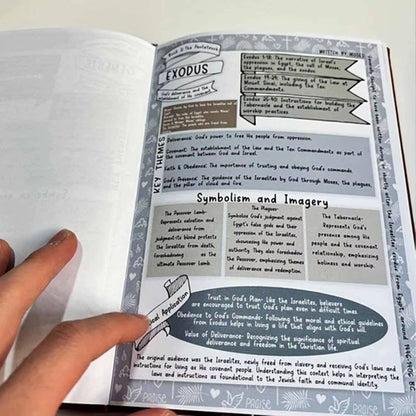 Book 2: The Pentateuch
WRITTEN BY MOSES
EXODUS
God's deliverance and the
Exodus 1-18: The narrative of Israel's
oppression in Egypt, the call of Moses,
the plagues, and the exodus.
Exodus 19-24: The giving of the Law at
Mount Sinai, including the Ten
Commandments.
Exodus 25-40: Instructions for building the
Tabernacle and the establishment of
worship practices.
KEY THEMES
Deliverance: God's power to free His people from oppression.
Covenant: The establishment of the Law and the Ten Commandments as part of
the covenant between God and Israel.
Faith & Obedience: The importance of trusting and obeying God's commands.
God's Presence: The guidance of the Israelites by God through Moses, the plagues,
and the pillar of cloud and fire.
Symbolism and Imagery
The Passover Lamb-
Represents salvation and
deliverance from
judgment-its blood protects
the Israelites from death,
foreshadowing
as the
ultimate Passover Lamb.
The Plagues-
Symbolize God's judgment against
Egypt's false gods and their
oppression of the Israelites,
showcasing His power and
authority. They also foreshadow
the Passover, emphasizing themes
of deliverance and redemption.
The Tabernacle-
Represents God's
presence among His
people and the covenant
relationship, emphasizing
holiness and worship.
Application
Trust in God's Plan- Like the Israelites, believers
are encouraged to trust God's plan even in difficult times.
Obedience to God's Commands- Following the moral and ethical guidelines
from Exodus helps in living a life that aligns with God's will.
Value of Deliverance- Recognizing the significance of spiritual
deliverance and freedom in the Christian life.
The original audience was the Israelites, newly freed from slavery and receiving God's laws and
instructions for living as His covenant people. Understanding this context helps in interpreting the
laws and instructions as foundational to the Jewish faith and communal identity.
PRAISE
PRAISE